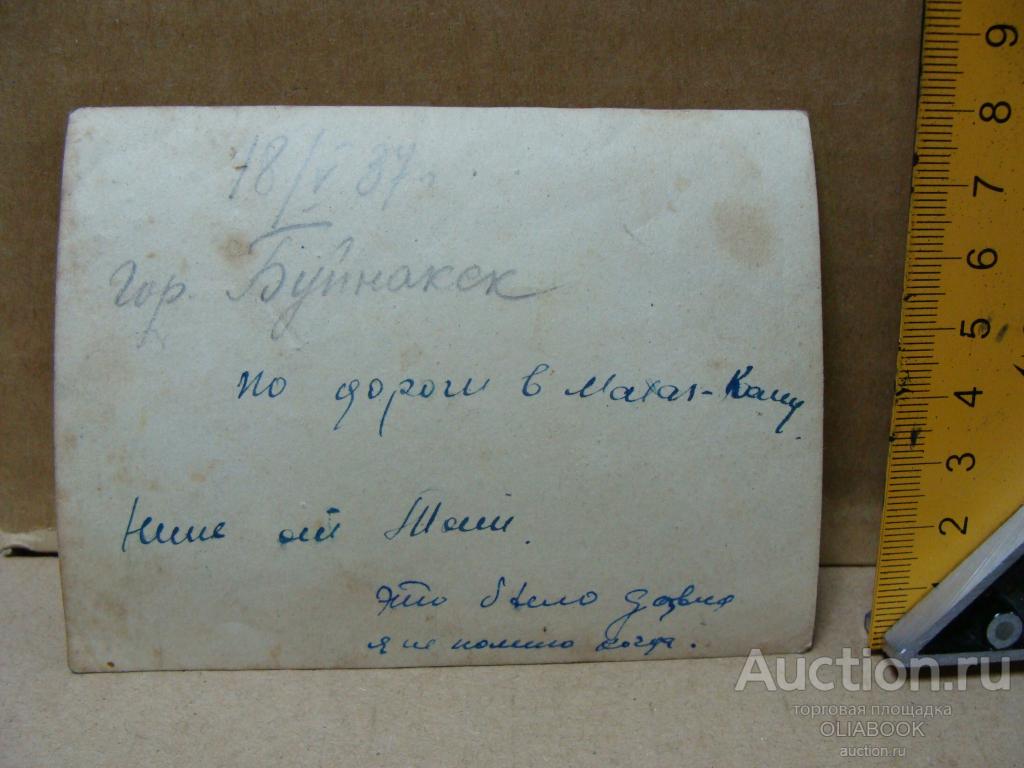 18/V 37 г.
гор. Буйнакск
по дороги в Махач-Калу.
Нине от Тони.
это было давно
я не помню когда.
9
8
7
6
5
4
3
2
1
Auction.ru
торговая площадка
OLIABOOK
auction.ru